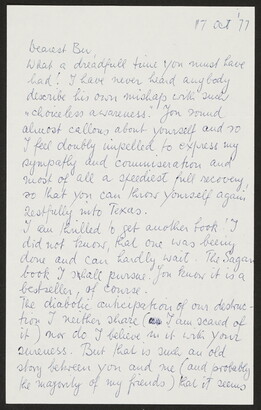 17 Oct '77
Dearest Ber,
What a dreadfull time you must have
had! I have never heard anybody
describe his own mishaps with such
"choiceless awareness". You sound
almost callous about yourself and so
I feel doubly impelled to express my
sympathy and commiseration and
most of all a speediest full recovery,
so that you can throw yourself again
zestfully into Texas.
I am thrilled to get another book! I
did not know, that one was being
done and can hardly wait. The Sagan
book I shall pursue. You know it is a
bestseller, of course.
The diabolic anticipation of our destruc-
tion I neither share (I am scared of
it) nor do I believe in it with your
sureness. But that is such an old
story between you and me (and probably
the majority of my friends) that it seems